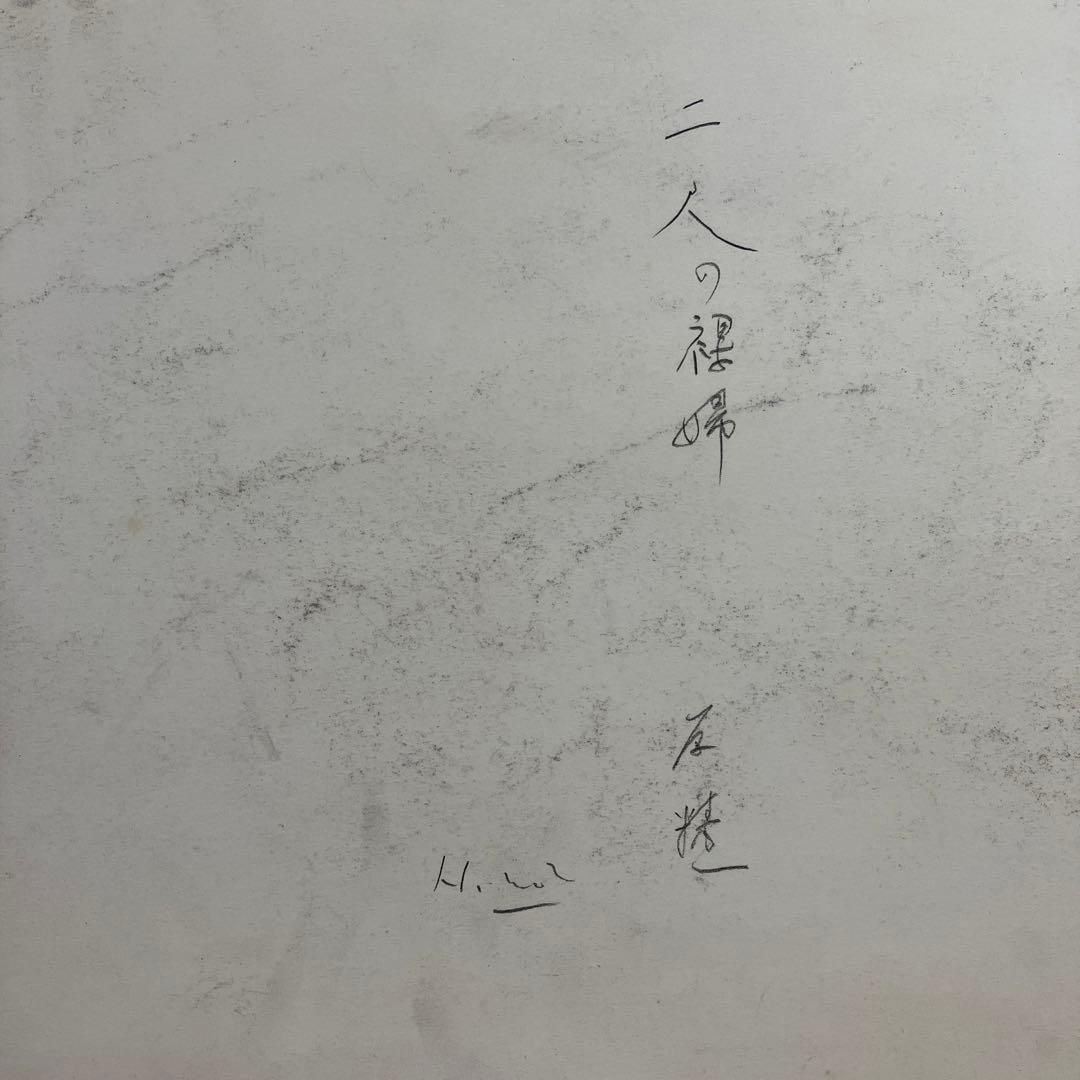 二人の裸婦
原精一
H.202